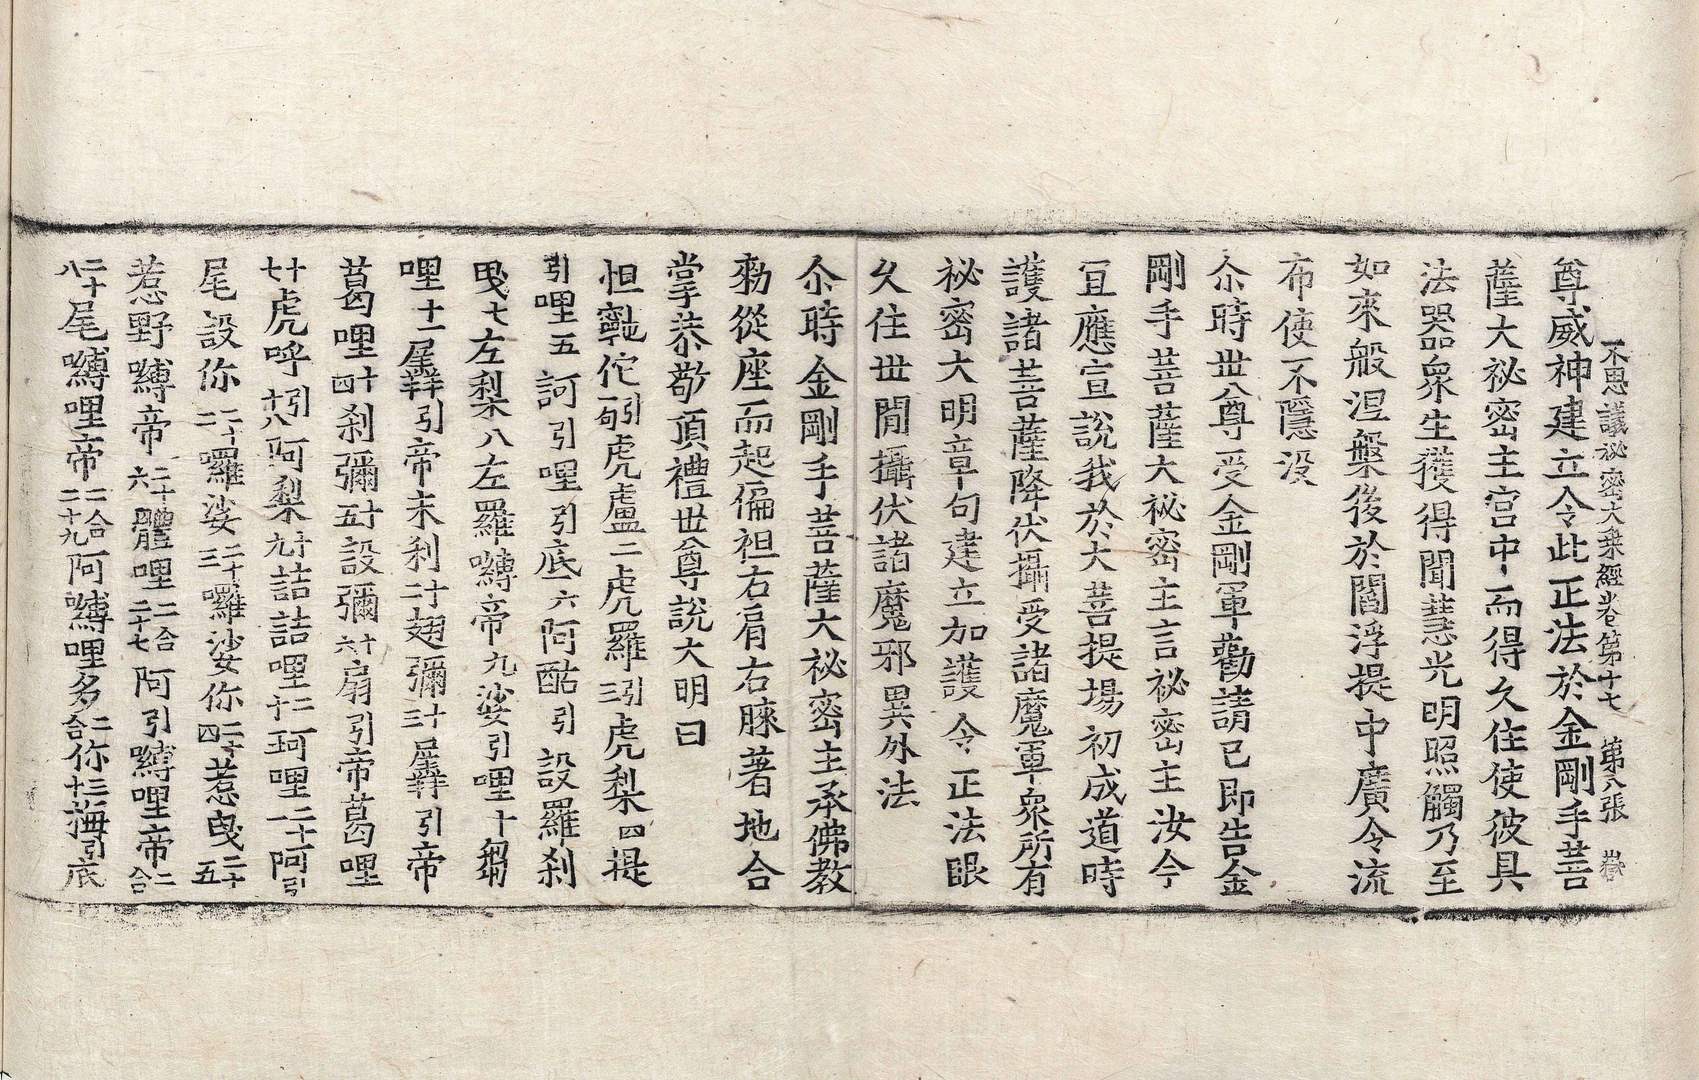 不思議祕密大乘經卷第十七　第八張　嶽
尊威神建立令此正法於金剛手菩
薩大祕密主宮中而得久住使彼具
法器衆生獲得聞慧光明照觸乃至
如來般涅槃後於閻浮提中廣令流
布使不隱没
尒時世尊受金剛軍勸請已即告金
剛手菩薩大祕密主言祕密主汝今
宜應宣說我於大菩提場初成道時
護諸菩薩降伏攝受諸魔軍衆所有
祕密大明章句建立加護令正法眼
久住世間攝伏諸魔邪異外法
尒時金剛手菩薩大祕密主承佛教
勑從座而起偏袒右肩右膝著地合
掌恭敬頂禮世尊說大明曰
怛䭾佗引一句虎盧二虎羅引三虎梨四提
引哩五訶引哩引底六阿酷引設羅刹
曳七左梨八左羅嚩帝九娑引哩十芻
哩十一犀引帝末利十二翅彌十三犀引帝
葛哩十四刹彌十五設彌十六扇引帝葛哩
十七虎呼引十八阿梨十九詰詰哩二十珂哩二十一阿引
尾設你二十二囉娑二十三囉娑你二十四惹曳二十五
惹野嚩帝二十六體哩二合二十七阿引嚩哩帝二合
二十八尾嚩哩帝二合二十九阿嚩哩多二合你三十拇引底